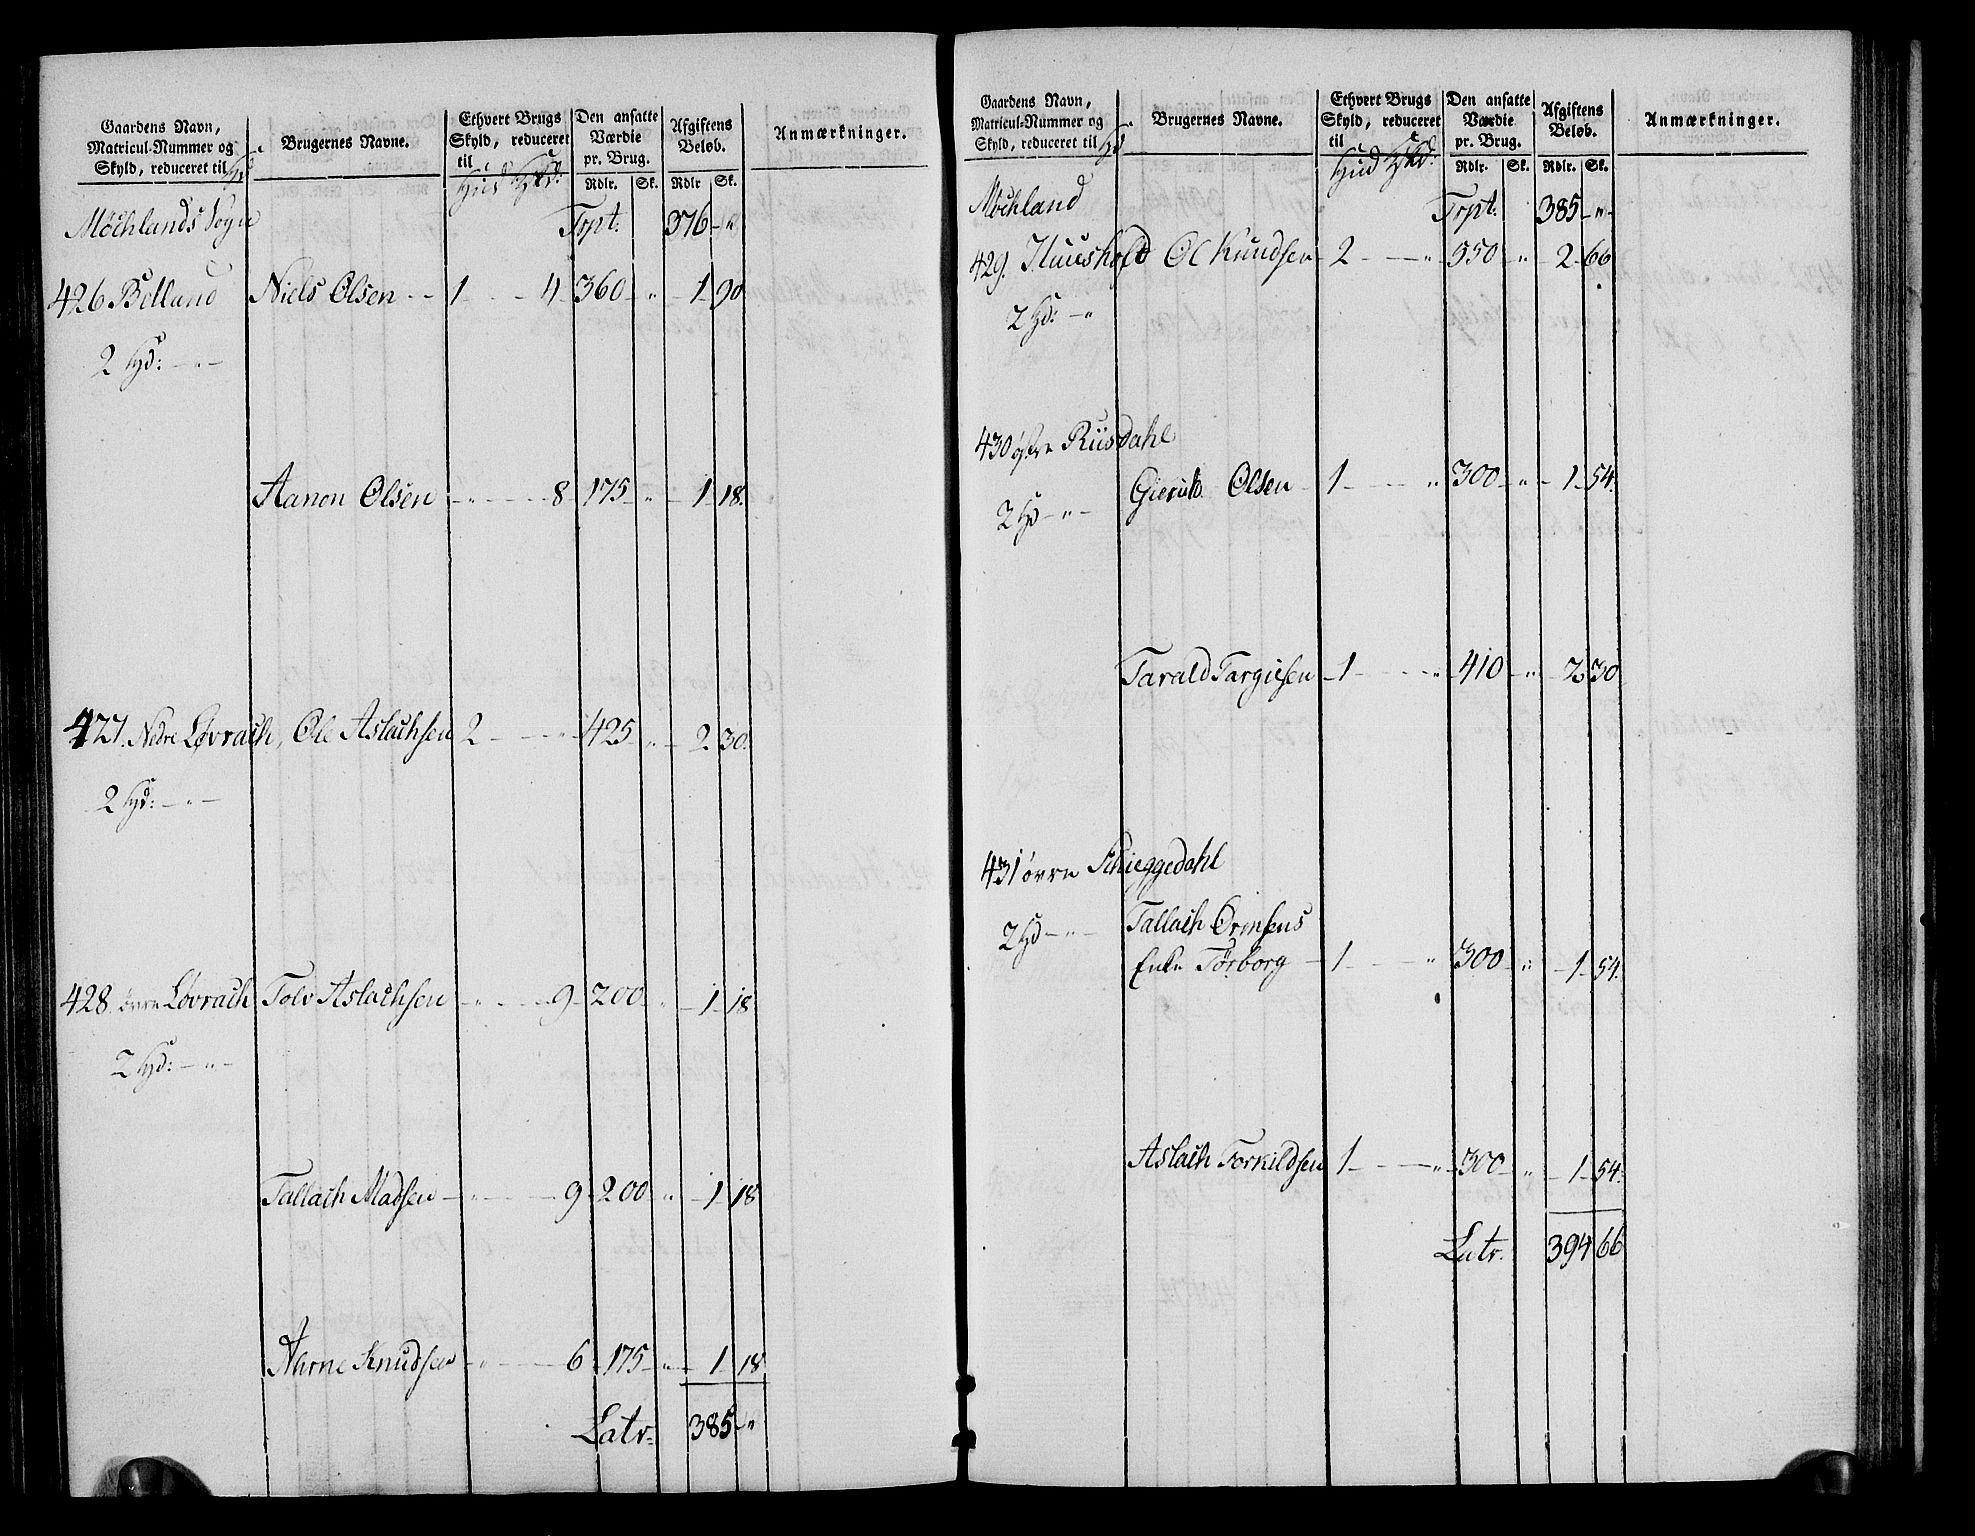 Gaardens Navn, Matricul-Nummer og Skyld, reduceret til Hd | Brugernes Navne. | Ethvert Brugs Skyld, reduceret til Hud Skd: | Den ansatte Værdie pr. Brug. Rdlr. Sk. | Afgiftens Beløb. Rdlr Sk. | Anmærkninger.
Møchlands Sogn Trpt: 376 - "
426 Belland Niels Olsen - - 1 - - 4 - 360 - " - 1 - 90
2 Hd: - " -
Aanon Olsen - " - - 8 175 - " - 1 - 18.
427. Nedre Løvrach, Ole Aslachsen 2 - - " - 425 - " - 2. 30.
2 Hd: - " -
428. øvre Løvrach Tolv Aslachsen - " - - 9 - 200 - " - 1 - 18
2 Hd: - " -
Tallach Madsen - " - - 9 - 200 " - 1 - 18
Aarne Knudsen - " - - 6 - 175 - " - 1 - 18
Latr: 385 - "
Gaardens Navn, Matricul-Nummer og Skyld, reduceret til Hd | Brugernes Navne. | Ethvert Brugs Skyld, reduceret til Hud Skd: | Den ansatte Værdie pr. Brug. Rdlr. Sk. | Afgiftens Beløb. Rdlr. Sk. | Anmærkninger.
Møchland Trpt: 385 - "
429. Huusholt Ol Knudsen - 2 - - " - 550 " - 2 - 66
2 Hd: - "
430 østre Riisdahl
Olsen - 1 - - " 300 - " - 1 - 54.
2 Hd - " -
Tarald Targiesen - 1 - - " - 410 - " - 2 - 30
431 øvre Schieggedahl
Tallach Ormsens
2 Hd - " -
Enke Torborg - 1 - - " - 300 - " - 1 - 54.
Aslach Torkildsen 1 - - " - 300 - " - 1 - 54.
Latr. 394 66